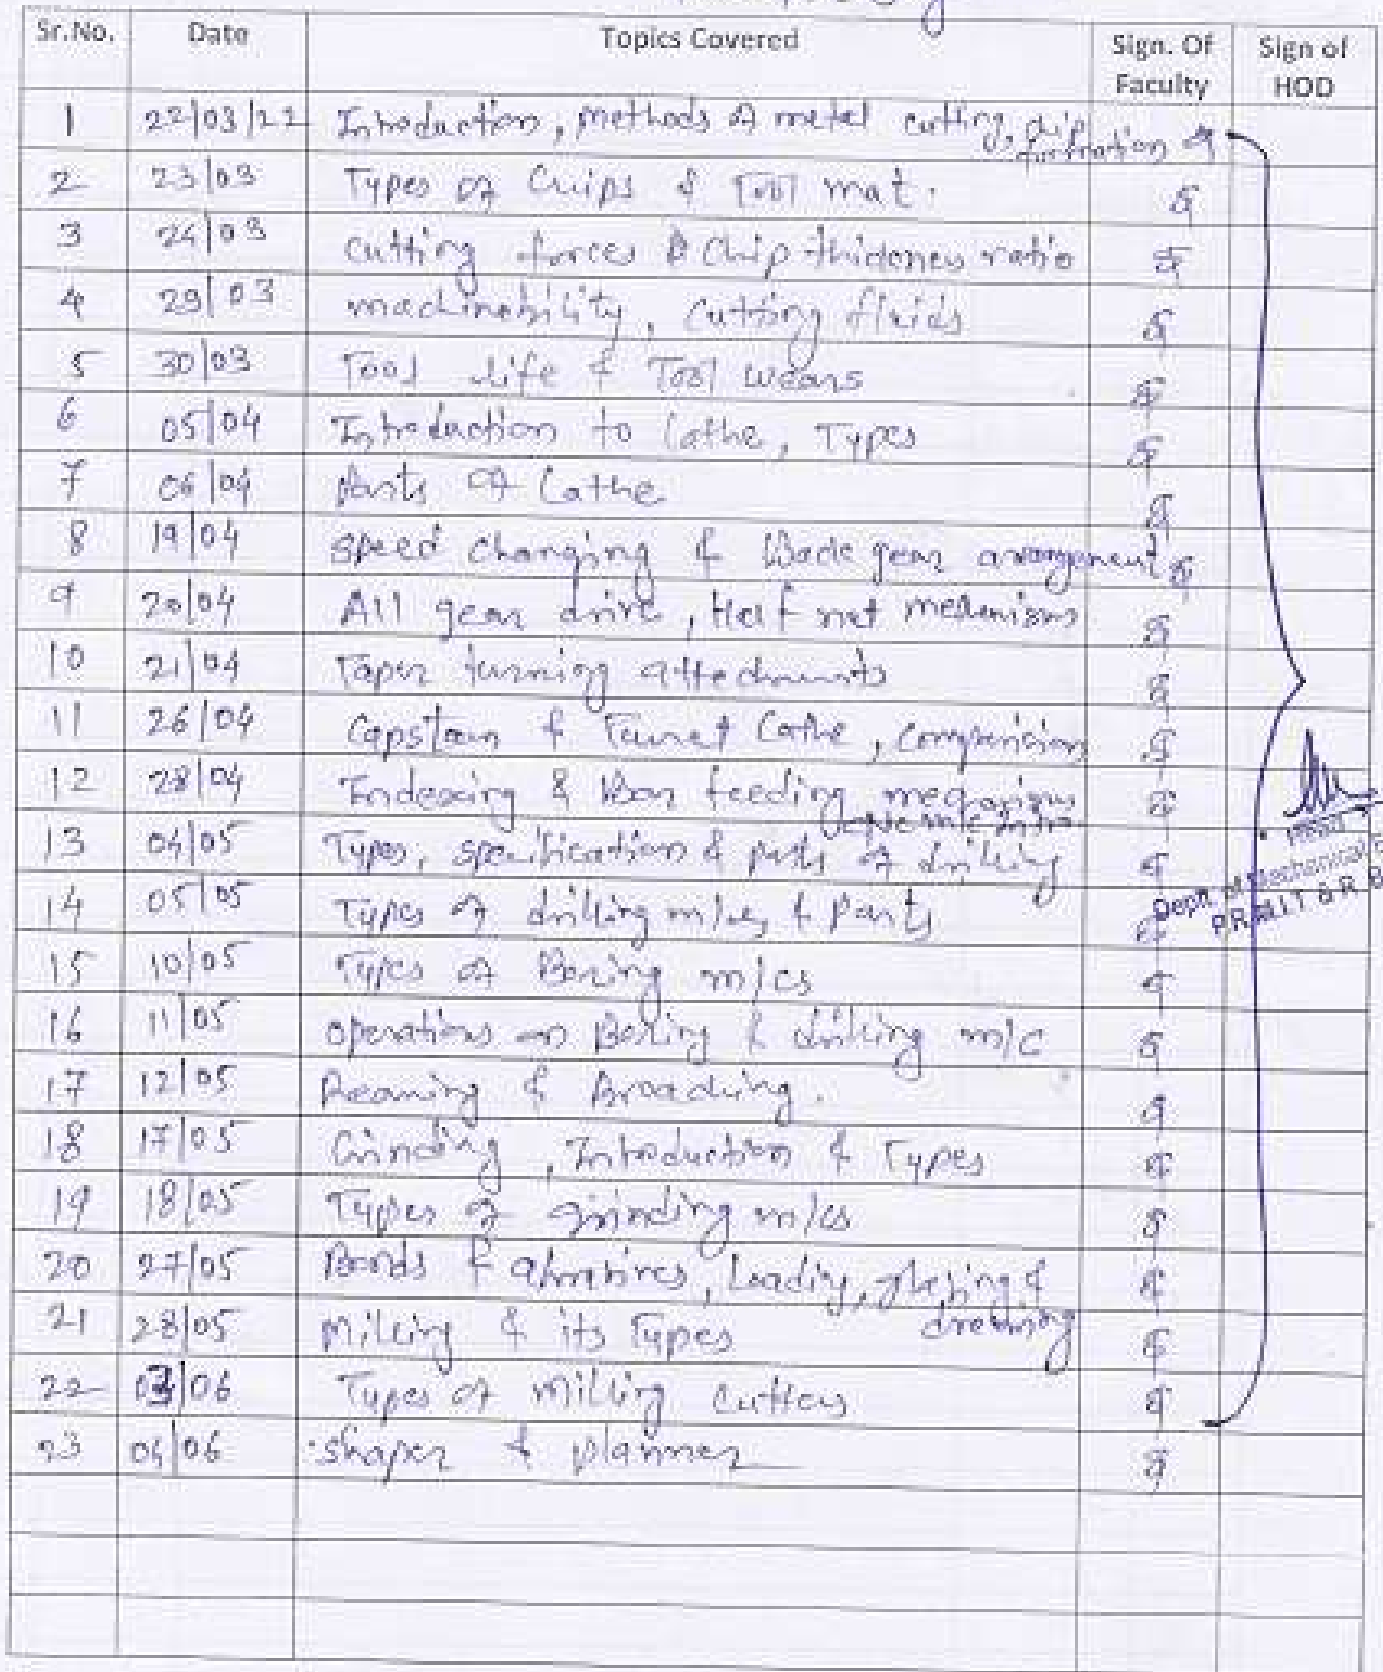 Sr.No. Date Topics Covered Sign. Of Faculty Sign of HOD
1 22/03/22 Introduction, methods of metal cutting, chip formation
2 23/03 Types of Chips & Tool mat.
3 24/03 Cutting forces & Chip thickness ratio
4 29/03 machinability, cutting fluids
5 30/03 Tool life & Tool wears
6 05/04 Introduction to Lathe, Types
7 06/04 Parts of Lathe
8 19/04 speed changing & Back gear arrangement
9 20/04 All gear drive, Half nut mechanism
10 21/04 Taper turning attachments
11 26/04 Capstan & Turret Lathe, comparision
12 28/04 Indexing & Bar feeding mechanism
13 04/05 Types, specification & parts of drilling
14 05/05 Types of drilling m/cs & Parts
15 10/05 Types of Boring m/cs
16 11/05 operations on Boring & drilling m/c
17 12/05 Reaming & Broaching.
18 17/05 Grinding, Introduction & Types
19 18/05 Types of grinding m/cs
20 27/05 Bonds & abrasives, Loading, glazing & dressing
21 28/05 Milling & its Types
22 03/06 Types of Milling Cutters
23 04/06 shaper & planner
Head
Dept. of Mechanical